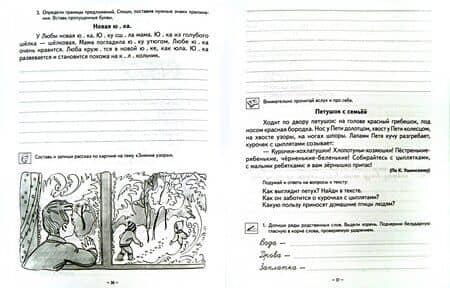 3. Определи границы предложений. Спиши, поставив нужные знаки препина-
ния. Вставь пропущенные буквы.
Новая ю . ка.
У Любы новая ю . ка. Ю . ку сш . ла мама. Ю . ка из голубого
шёлка — шёлковая. Маме погладила ю . ку утюгом. Любе ю . ка
очень нравится. Люба круж . тся в новой ю . ке, как юла. Ю . ка
развевается и становится похожа на к . л . кольчик.
Составь и запиши рассказ по картине на тему «Зимние узоры».
– 36 –
Внимательно прочитай вслух и про себя.
Петушок с семьёй
Ходит по двору петушок: на голове красный гребешок, под
носом красная бородка. Нос у Пети долотцом, хвост у Пети колесом,
на хвосте узоры, на ногах шпоры. Лапами Петя кучу разгребает,
курочек с цыплятами созывает:
— Курочки-хохлатушки! Хлопотуньи-хозяюшки! Пёстренькие-
рябенькие, чёрненькие-беленькие! Собирайтесь с цыплятками,
с малыми ребятками: я вам зёрнышко припас!
(По К. Ушинскому)
Подумай и ответь на вопросы к тексту:
Как выглядит петух? Найди в тексте.
Как он заботится о курочках с цыплятами?
Какую пользу приносят домашние птицы людям?
1. Допиши ряды родственных слов. Выдели корень. Подчеркни безударную
гласную в корне слова, проверяемую ударением.
Вода —
Дрова —
Заплатка —
– 37 –